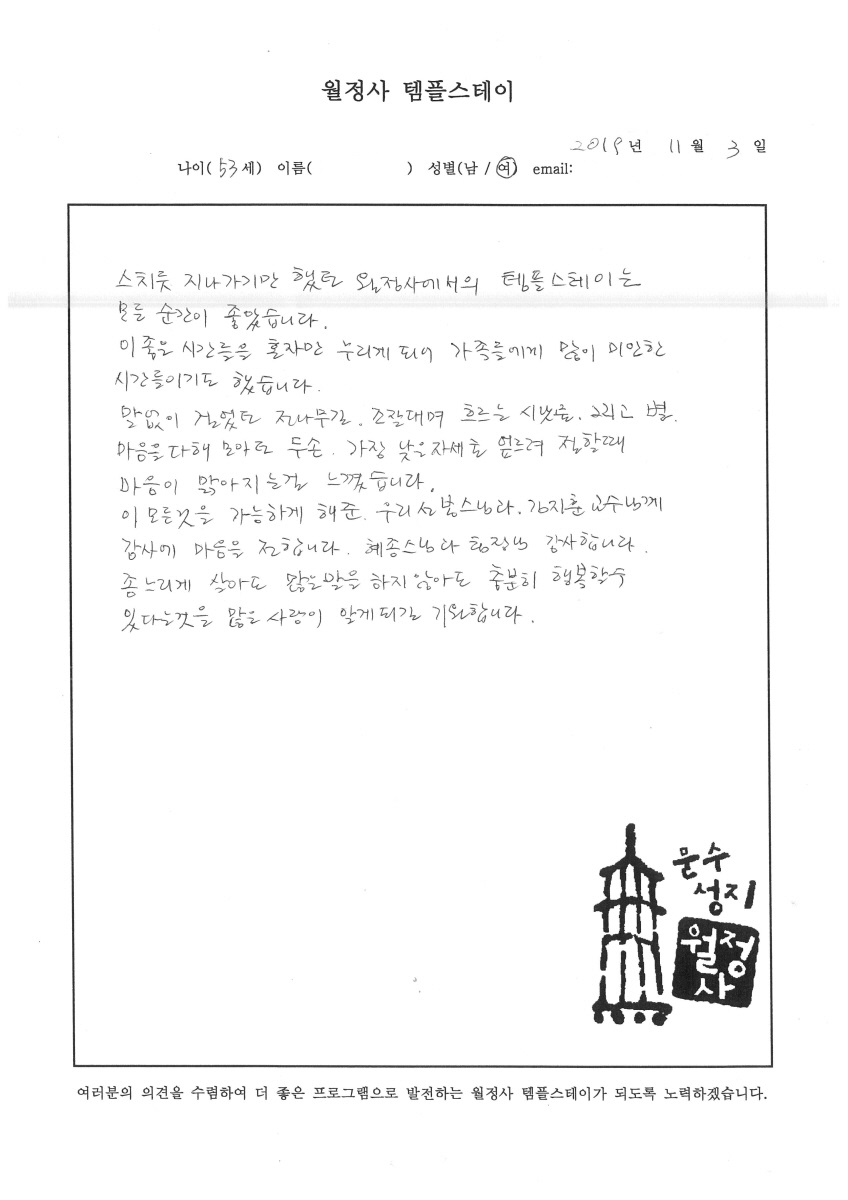 월정사 템플스테이
2019년 11월 3일
나이(53세) 이름( ) 성별(남 / 여) email:
스치듯 지나가기만 했던 월정사에서의 템플스테이는
모든 순간이 좋았습니다.
이 좋은 시간들을 혼자만 누리게 되어 가족들에게 많이 미안한
시간들이기도 했습니다.
말없이 걸었던 전나무길. 조잘대며 흐르는 시냇물. 그리고 별.
마음을 다해 모아든 두손. 가장 낮은자세로 엎드려 절할때
마음이 맑아지는걸 느꼈습니다.
이 모든것을 가능하게 해준. 우리 스님과. 김지훈 교수님께
감사에 마음을 전합니다. 혜종스님과 팀장님 감사합니다.
좀 느리게 살아도 많은말을 하지 않아도 충분히 행복할수
있다는것을 많은 사람이 알게되길 기원합니다.
문수
성지
월정
사
여러분의 의견을 수렴하여 더 좋은 프로그램으로 발전하는 월정사 템플스테이가 되도록 노력하겠습니다.